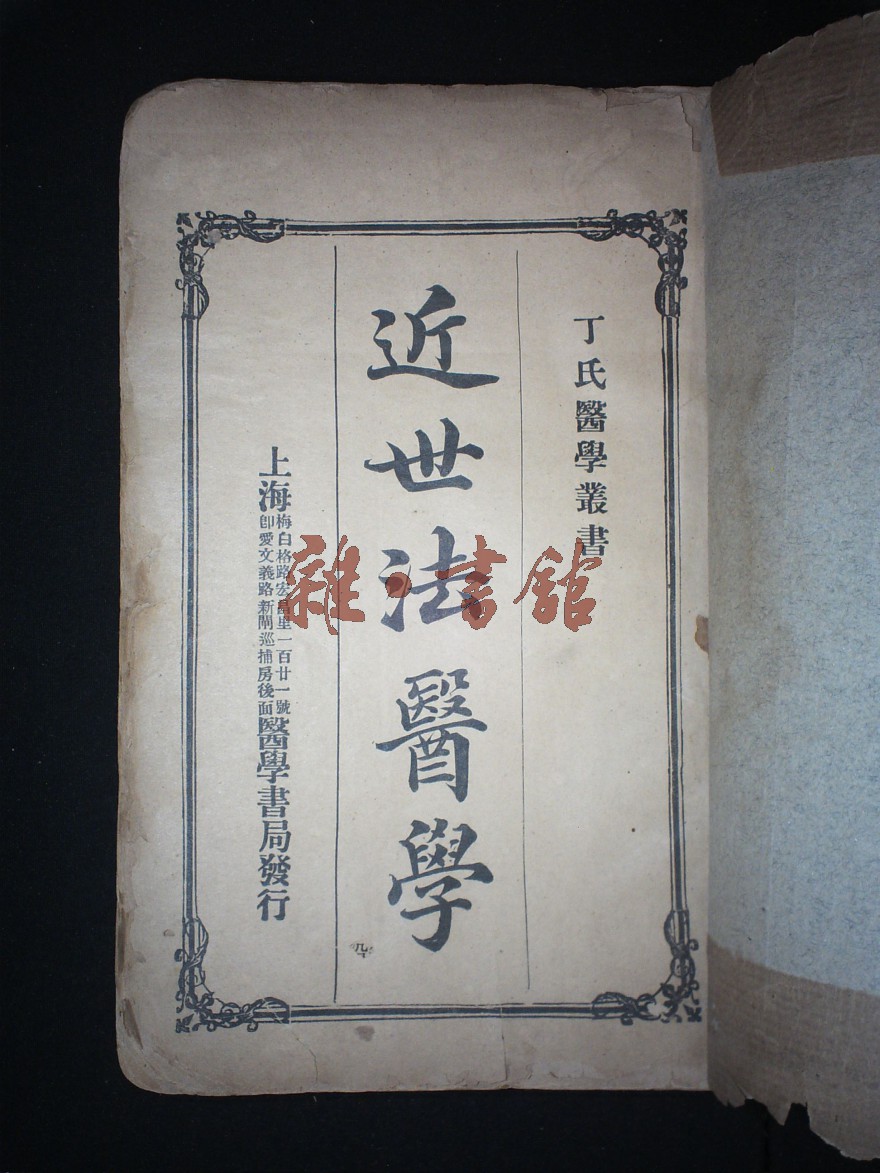 丁氏醫學叢書
近世法醫學
九十
上海
梅白格路宏昌里一百廿一號
卽愛文義路新閘巡捕房後面
醫學書局發行
雜·書舘